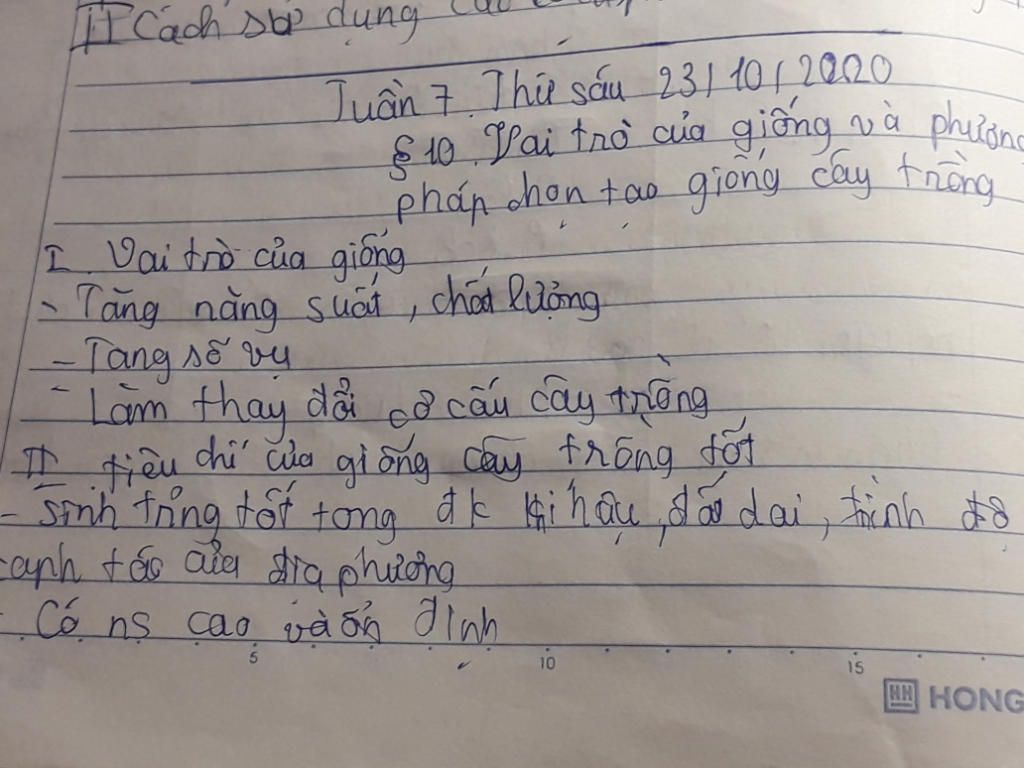 II Cách sử dụng các
Tuần 7. Thứ sáu 23/10/2020
§ 10. Vai trò của giống và phương
pháp chọn tạo giống cây trồng
I. Vai trò của giống
- Tăng năng suất, chất lượng
- Tăng số vụ
- Làm thay đổi cơ cấu cây trồng
II tiêu chí của giống cây trồng tốt
- sinh trưởng tốt tong đk khí hậu, đất đai, trình độ
canh tác của địa phương
- Có ns cao và ổn định
5 10 15
HH HONG